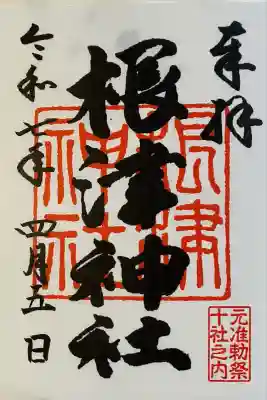 奉拝
根津神社
令和七年 四月五日
根津
神社
元准勅祭
十社之内